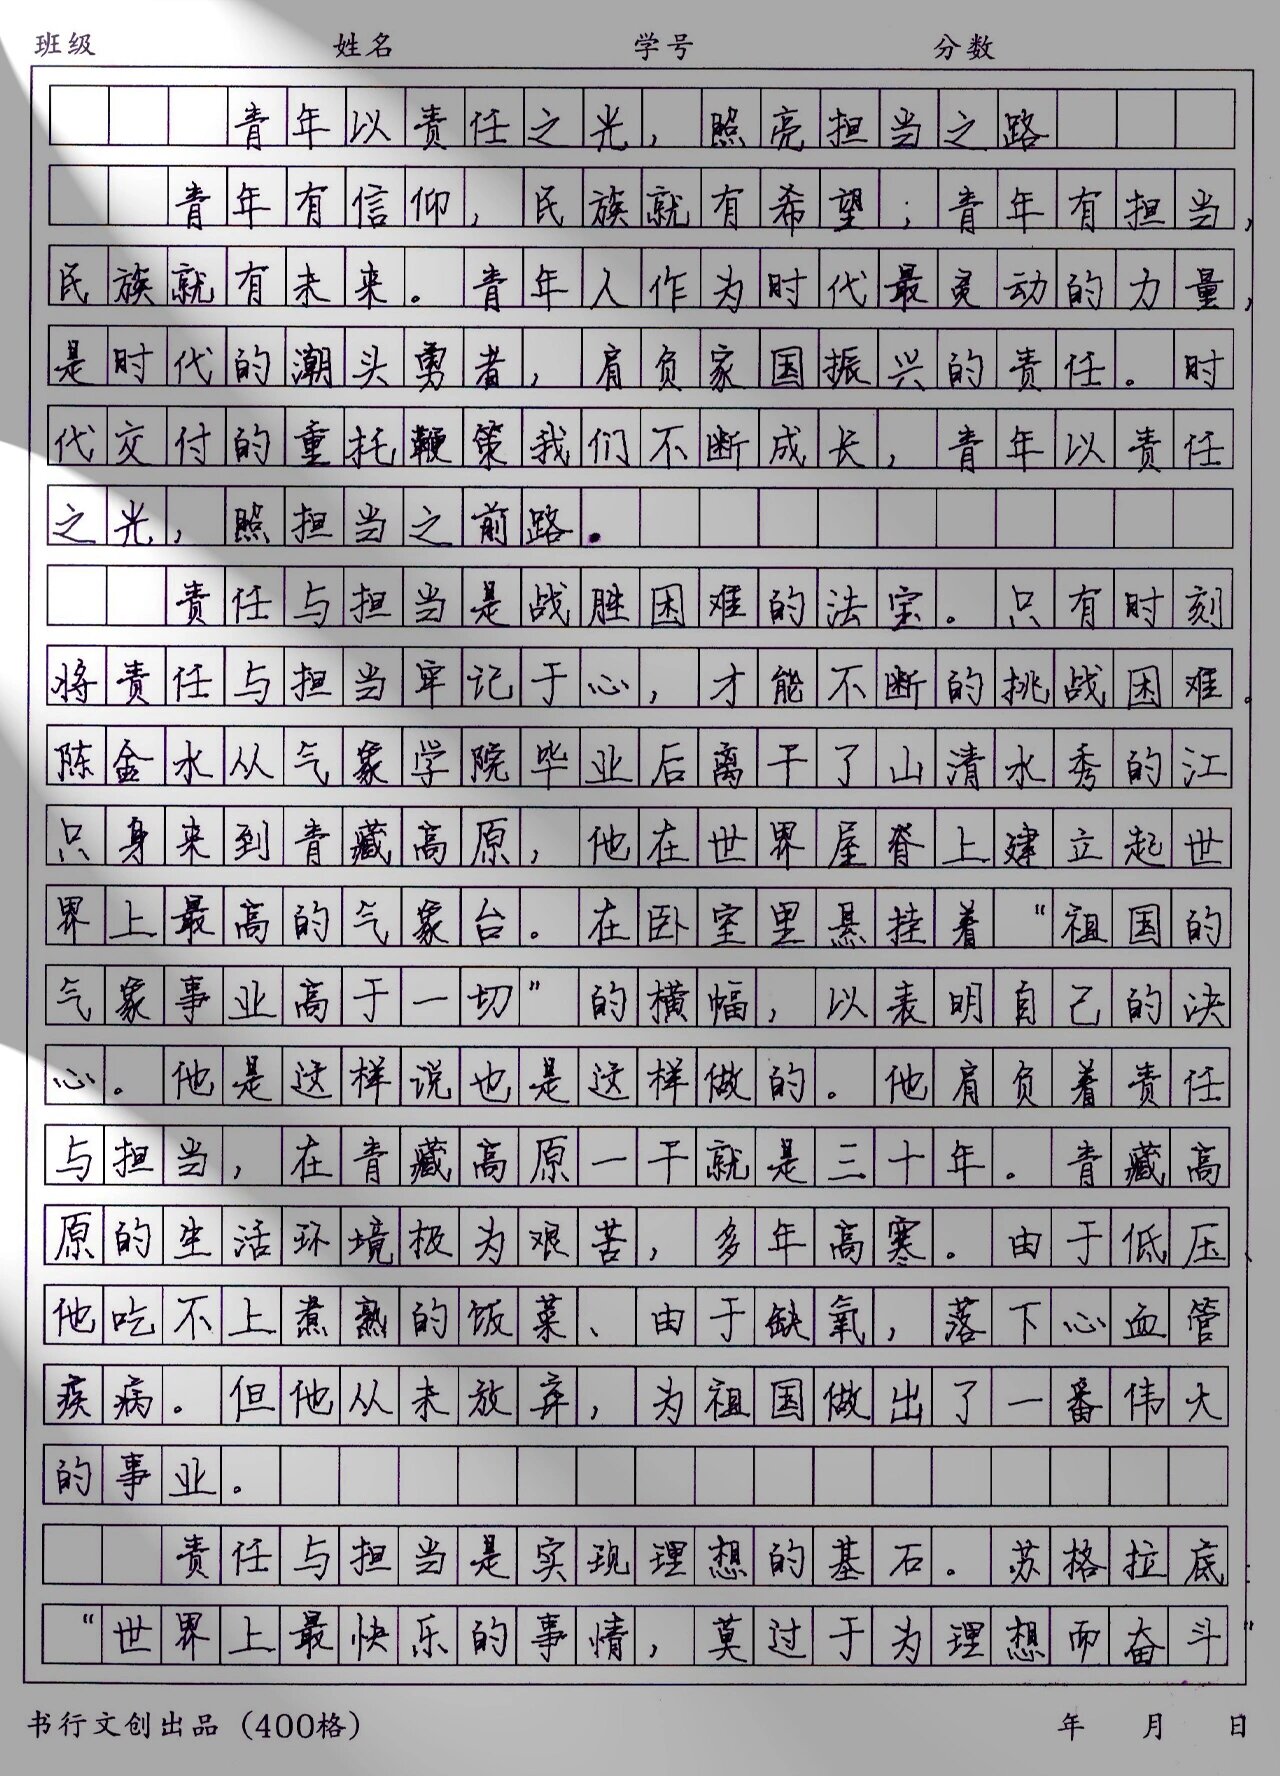 班级 姓名 学号 分数
青年以责任之光，照亮担当之路
青年有信仰，民族就有希望；青年有担当，
民族就有未来。青年人作为时代最灵动的力量，
是时代的潮头勇者，肩负家国振兴的责任。时
代交付的重托鞭策我们不断成长，青年以责任
之光，照担当之前路。
责任与担当是战胜困难的法宝。只有时刻
将责任与担当牢记于心，才能不断的挑战困难。
陈金水从气象学院毕业后离干了山清水秀的江
只身来到青藏高原，他在世界屋脊上建立起世
界上最高的气象台。在卧室里悬挂着“祖国的
气象事业高于一切”的横幅，以表明自己的决
心。他是这样说也是这样做的。他肩负着责任
与担当，在青藏高原一干就是三十年。青藏高
原的生活环境极为艰苦，多年高寒。由于低压、
他吃不上煮熟的饭菜、由于缺氧，落下心血管
疾病。但他从未放弃，为祖国做出了一番伟大
的事业。
责任与担当是实现理想的基石。苏格拉底：
“世界上最快乐的事情，莫过于为理想而奋斗”
书行文创出品（400格） 年 月 日